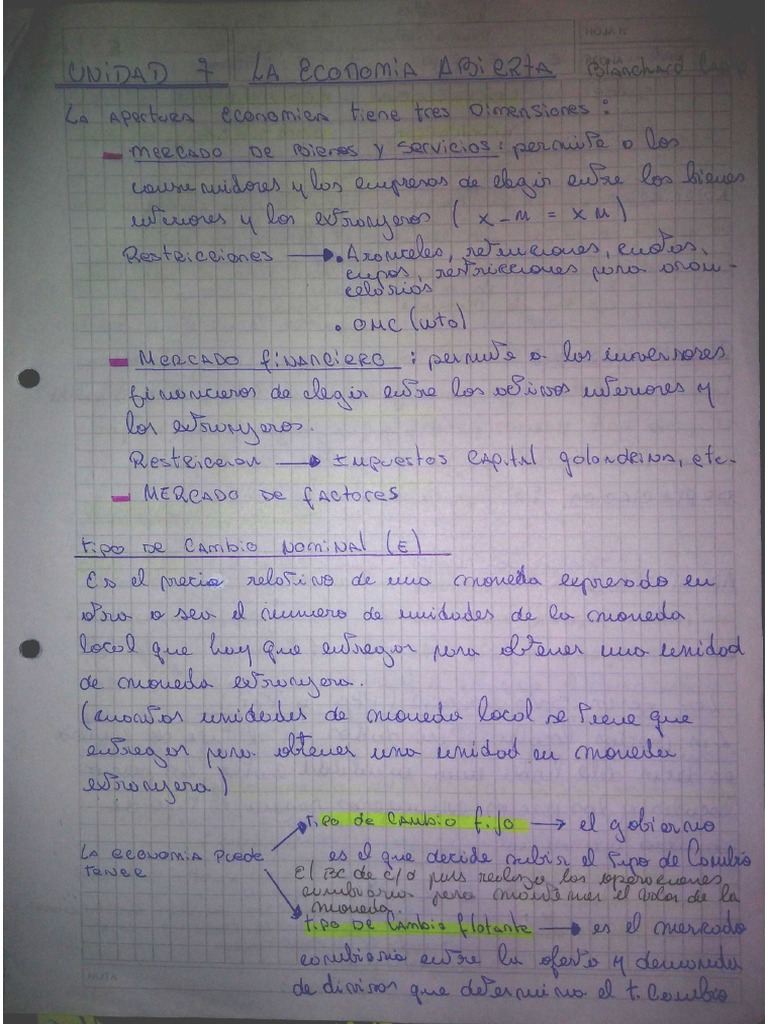 HOJA N
UNIDAD 7 LA ECONOMIA ABIERTA Blanchard
LA APERTURA ECONOMICA tiene tres Dimensiones:
- MERCADO DE Bienes y Servicios: permite a los
consumidores y las empresas de elegir entre los bienes
interiores y los extranjeros (X-M = XN)
Restricciones → • Aranceles, retenciones, cuotas,
cupos, restricciones para aran-
celarias
• OMC (wto)
- MERCADO financiero: permite a los inversores
financieros de elegir entre los activos interiores y
los extranjeros.
Restriccion → Impuestos capital golondrina, etc.
- MERCADO DE factores
tipo DE Cambio Nominal (E)
Es el precio relativo de una moneda expresado en
otra o sea el numero de unidades de la moneda
local que hay que entregar para obtener una unidad
de moneda extranjera.
(cuantas unidades de moneda local se tiene que
entregar para obtener una unidad en moneda
extranjera)
tipo de Cambio fijo → el gobierno
LA economia puede es el que decide subir el tipo de Cambio
tener El BC de c/d pais realiza las operaciones
cambiarias para mantener el valor de la
moneda.
tipo DE Cambio flotante → es el mercado
cambiario entre la oferta y demanda
de divisas que determina el t. Cambio
NOTA